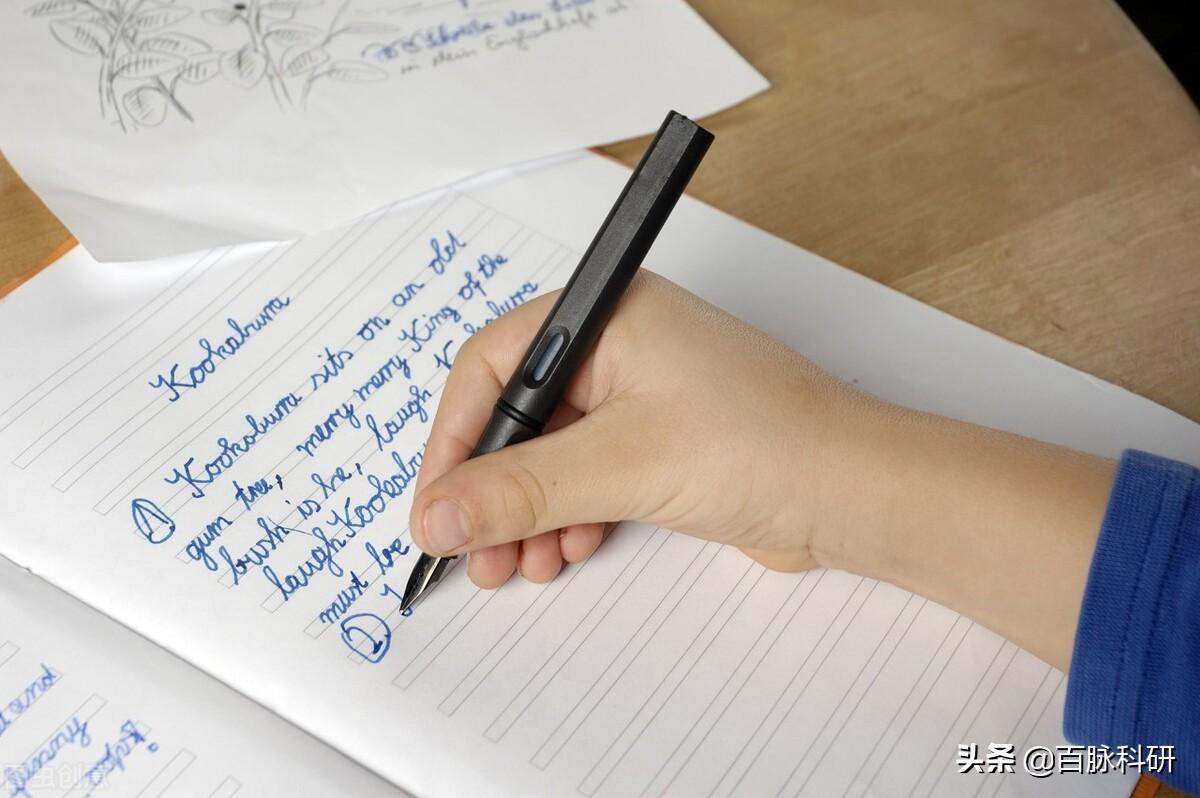 in dein Englischheft ab!
Kookaburra
① Kookaburra sits on an old
gum tree, merry merry King of the
bush is he, laugh Kookaburra
laugh Kookaburra
must be
②
and
头条 @百脉科研
图虫创意